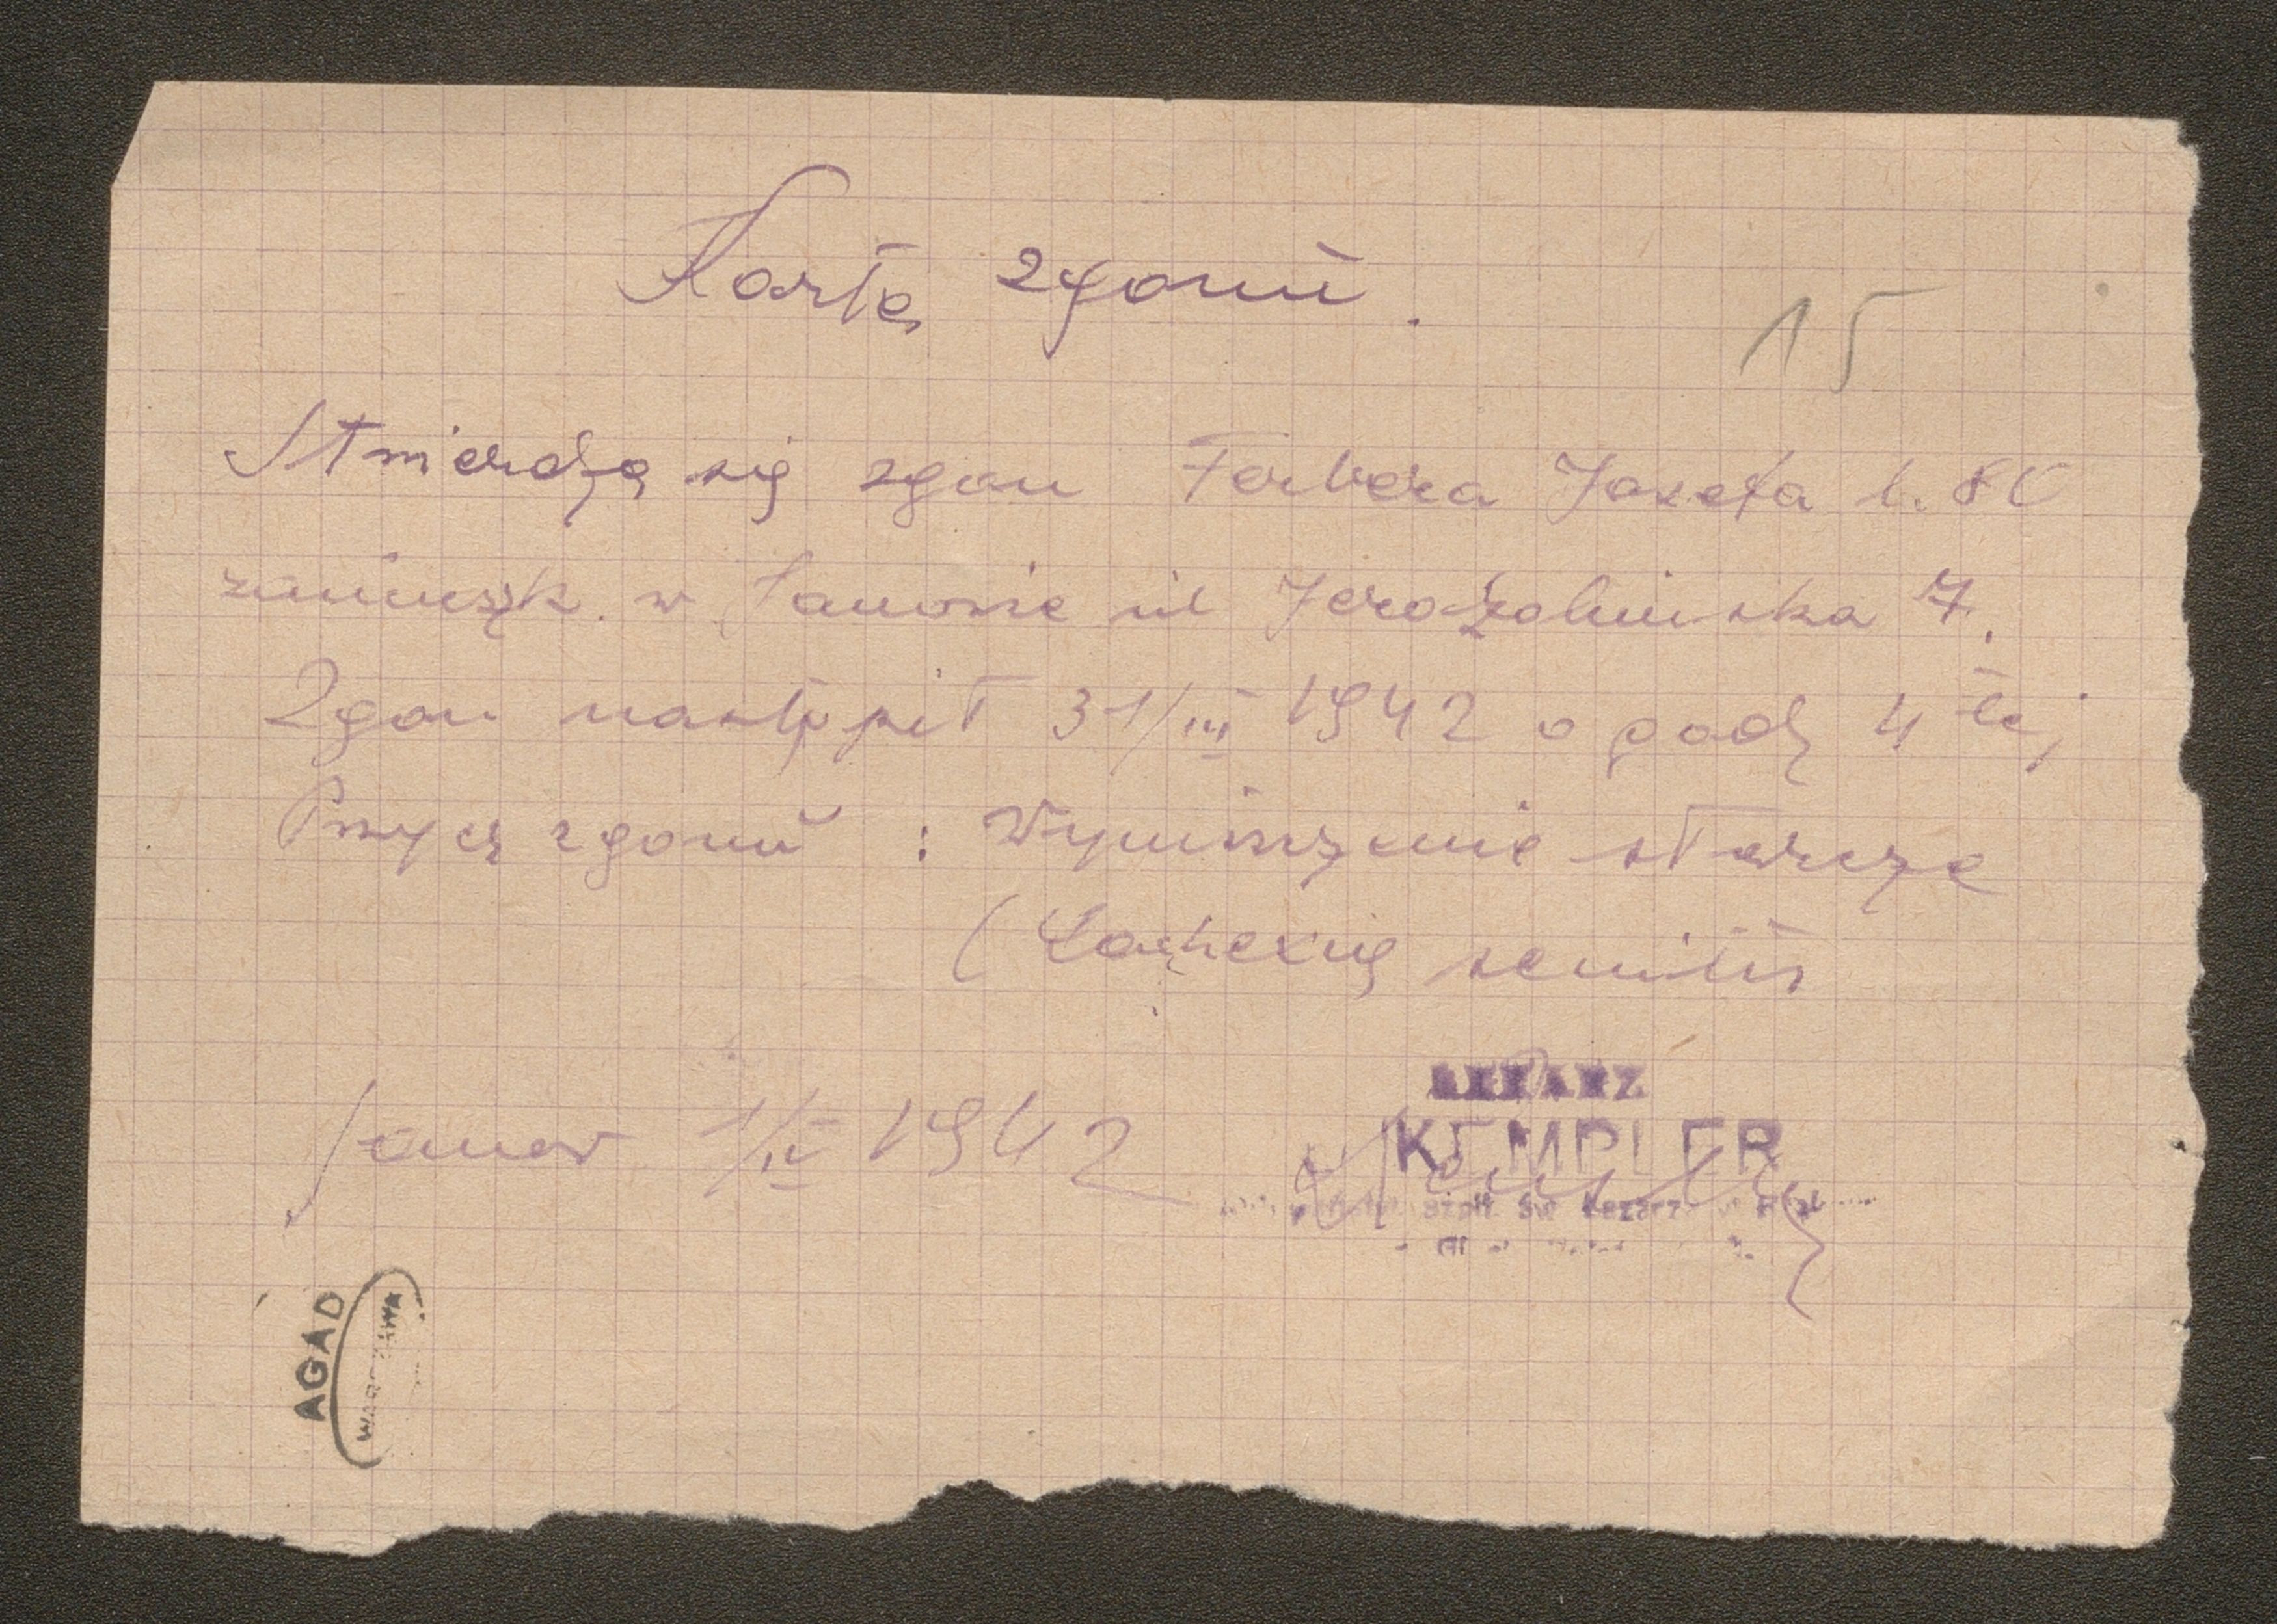 Karta zgonu.
15
Stwierdza się zgon Ferbera Jozefa l. 80
zamieszk. w Janowie ul Jerozolimska 7.
Zgon nastąpił 31/III 1942 o godz 4 tej
Przycz zgonu : Wyniszczenie starcze
(Cachexia senilis
Janów 1/IV 1942
LEKARZ
KEMPLER
AGAD
WARSZAWA